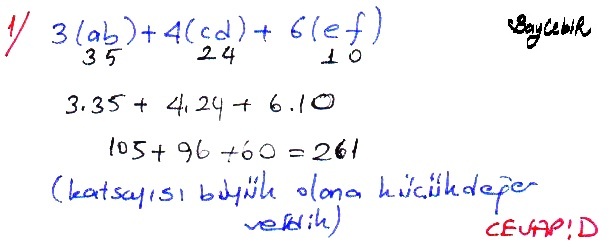 1/ 3(ab)+4(cd)+ 6(ef) BayCebiR
35 24 10
3.35+ 4.24+ 6.10
105+96+60=261
(katsayısı büyük olana küçük değer
verdik)
CEVAP:D